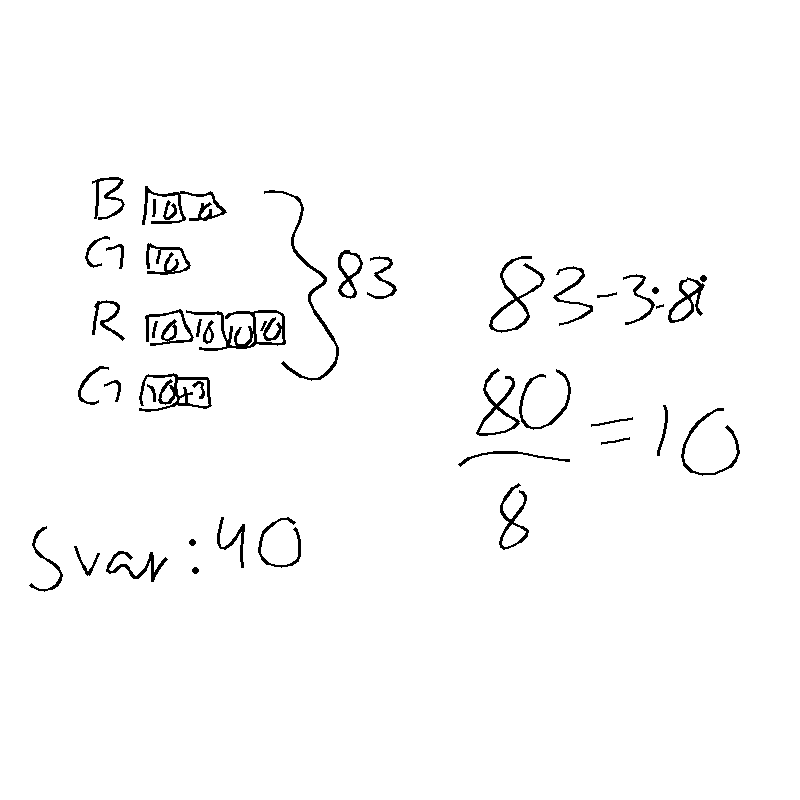 B 10 10
G 10
R 10 10 10 10
G 10 +3
83
83-3:8
80/8 = 10
Svar: 40